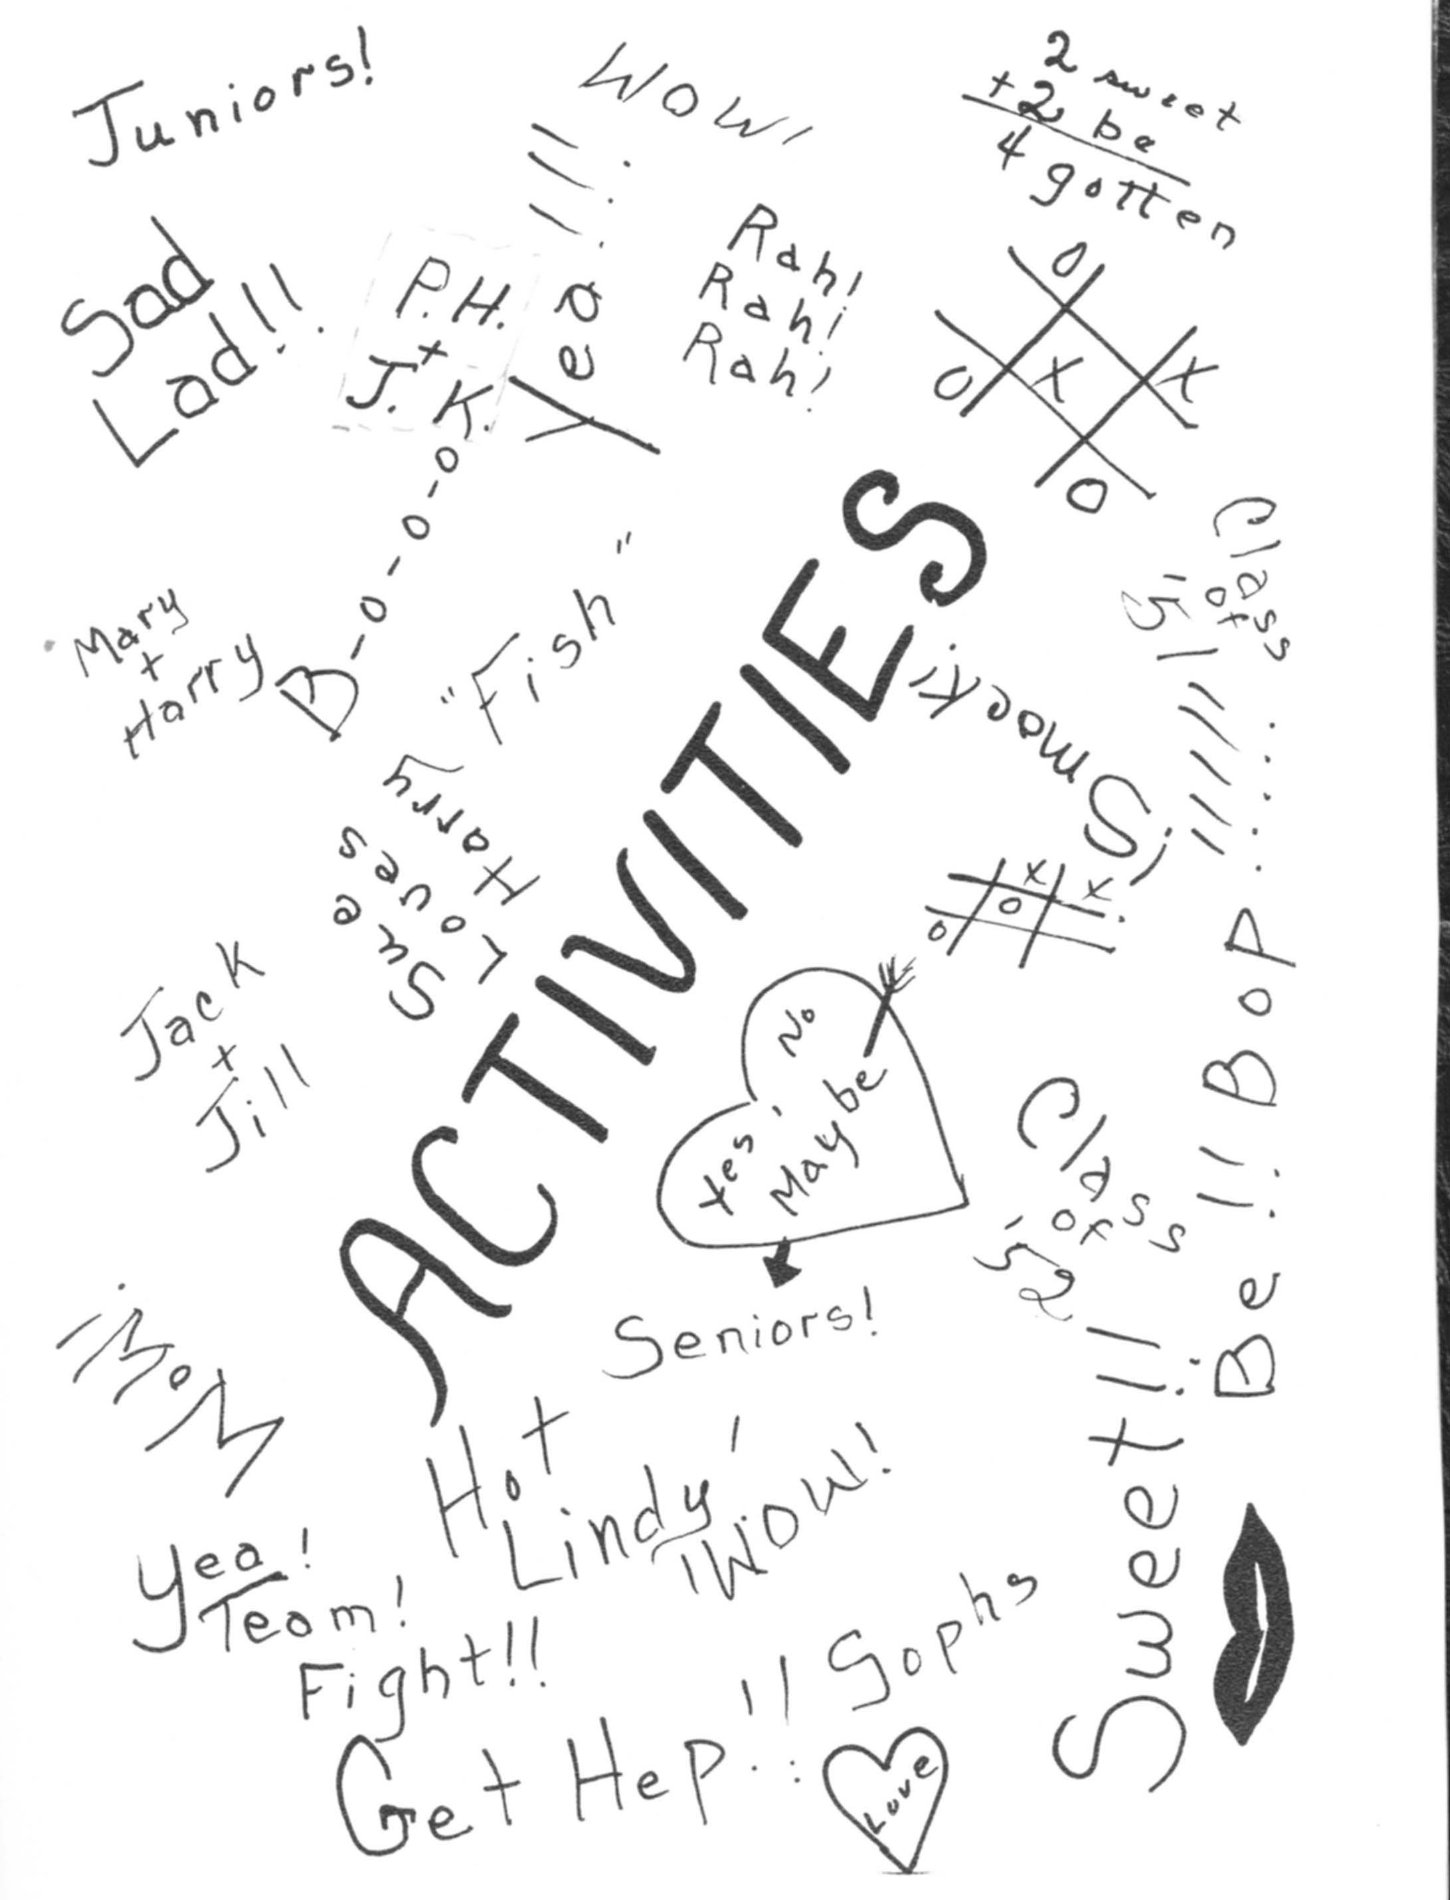 Juniors!
WOW!
2 sweet
+2 be
4 gotten
Sad
Lad!!
P.H.
+
J.K.
Yea!!!
Rah!
Rah!
Rah!
O
O X X
O
B-o-o-o
Mary
+
Harry
"Fish"
Class
of
'51!!!!!
Smocki!
ACTIVITIES
Sue
Loves
Harry
X X
O
O
Jack
+
Jill
No
Yes,
Maybe
Class
of
'52
Be!! Bop
Seniors!
WOW!
Hot
Lindy!
WOW!
Yea!
Team!
Fight!!
Sophs
Sweet!!
Get Hep!!
Love